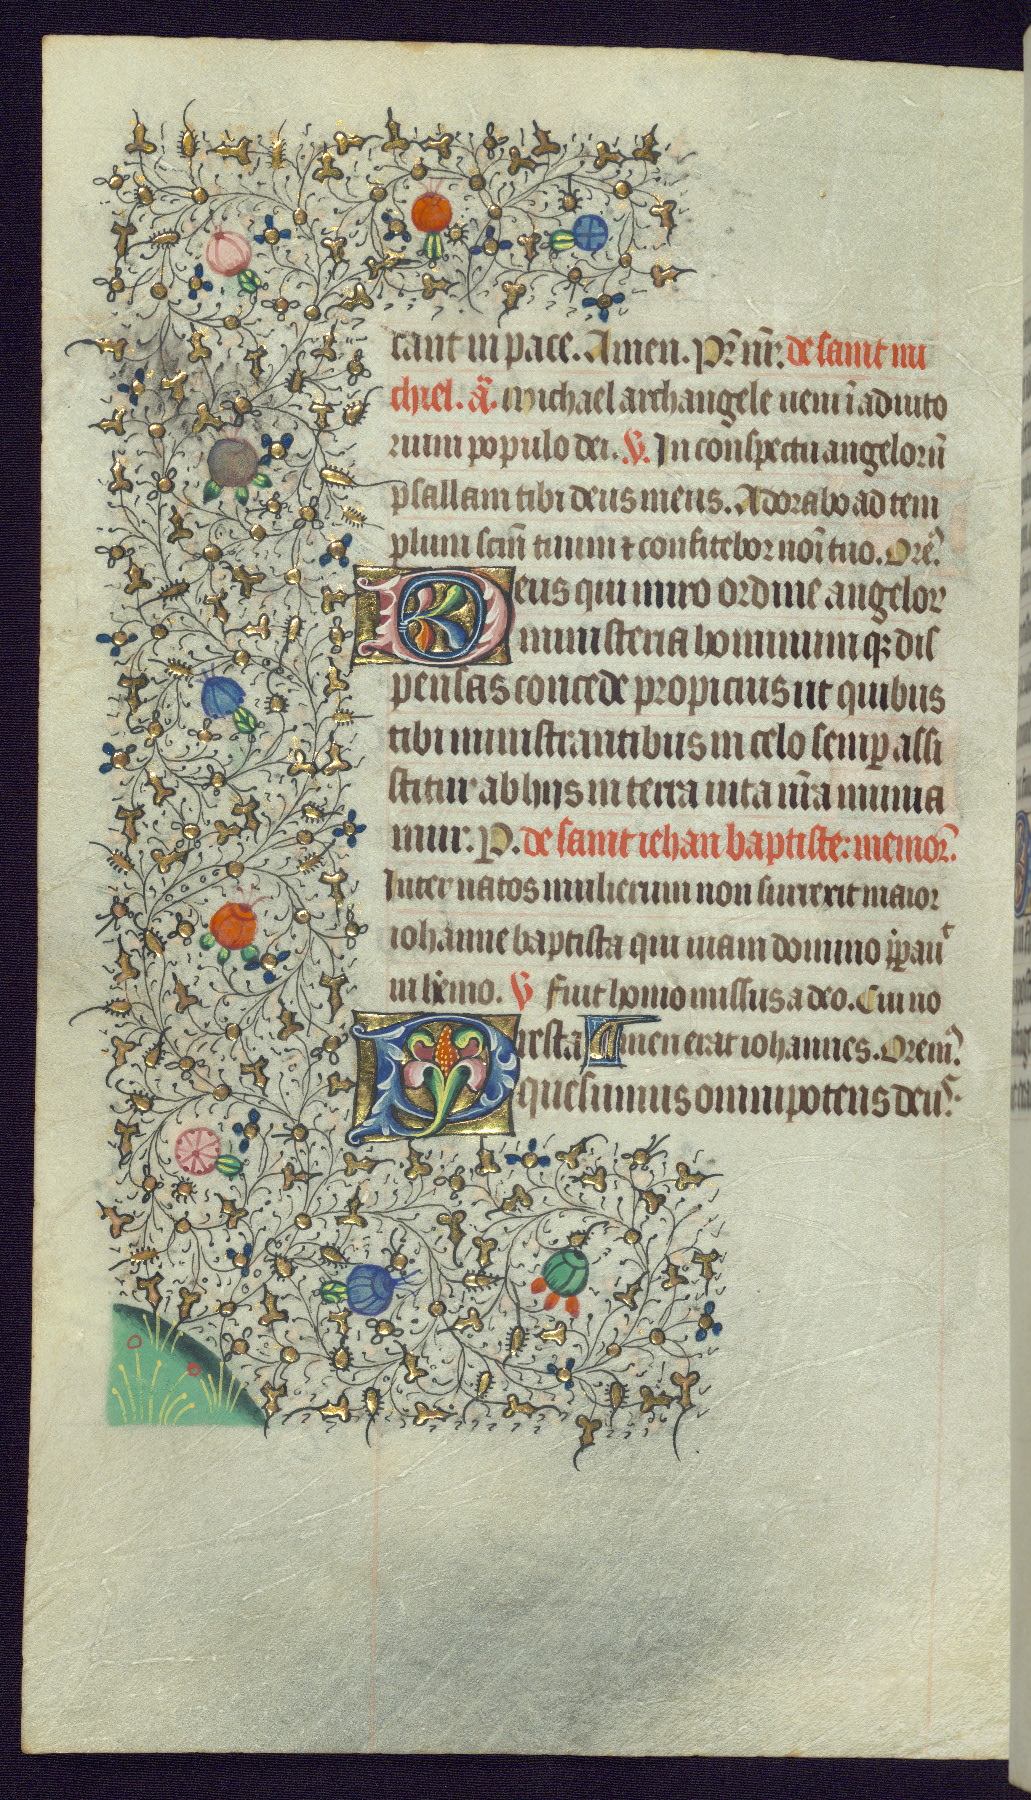 cant in pace. Amen. Pr̃ nr̃. de saint mi
chiel. añ. Michael archangele veni ĩ adiuto
rium populo dei. V. In conspectu angelorũ
psallam tibi deus meus. Adorabo ad tem
plum scm̃ tuum ⁊ confitebor noĩ tuo. Orẽ.
Deus qui miro ordine angelor
ministeria hominum q3 dis
pensas concede propicius ut quibus
tibi ministrantibus in celo semp̱ assi
stitur ab hijs in terra uita nr̃a munia
mur. P. de saint iehan baptiste: memor̃.
Inter natos mulierum non surrexit maior
iohanne baptista qui uiam domino p̱p̱auit
in h̃emo. V Fuit homo missus a deo. Cui no
Presta men erat iohannes. Orem̃.
quesumus omnipotens deus.